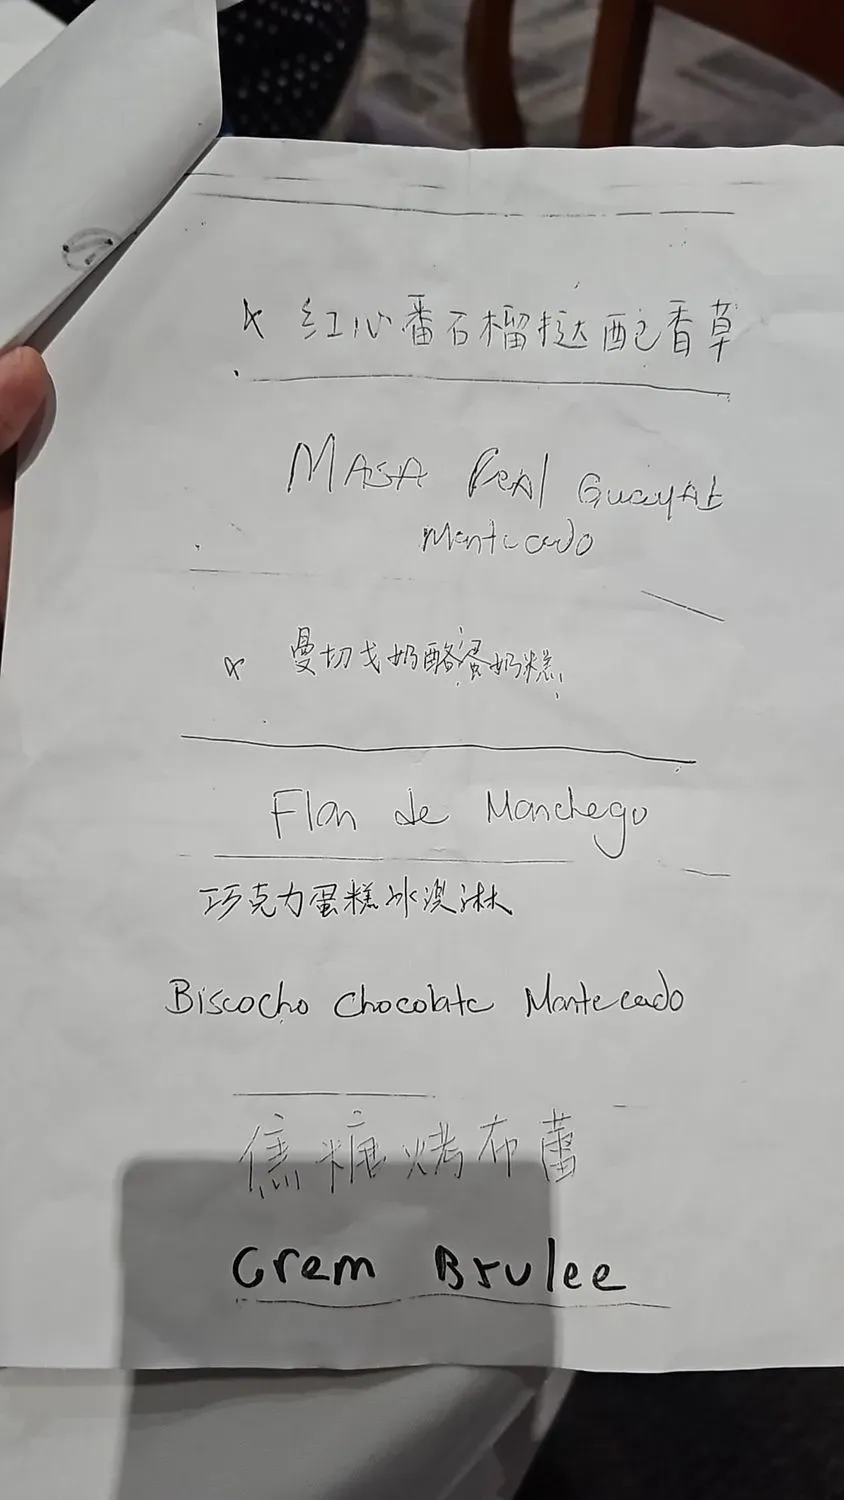 红心番石榴挞配香草
Masa Real Guayaba
Mantecado
曼切戈奶酪蛋奶糕
Flan de Manchego
巧克力蛋糕冰淇淋
Biscocho Chocolate Mantecado
焦糖烤布蕾
Crem Brulee